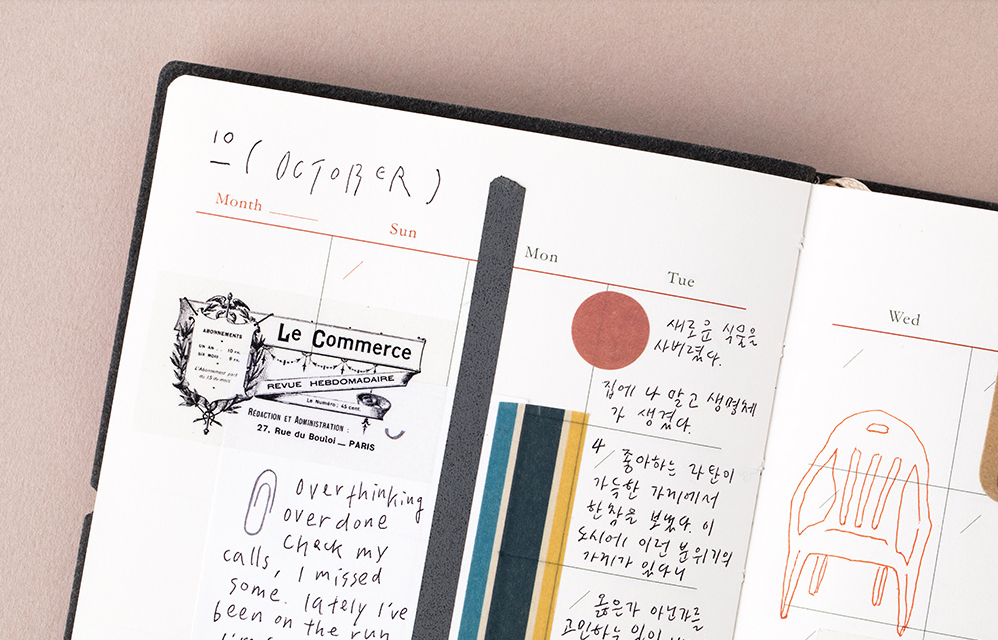 10
( OCTOBER )
Month
Sun
Mon
Tue
Wed
ABONNEMENTS
UN AN 10 fr.
SIX MOIS 6 fr.
L'Abonnement part
du 15 du mois
Le Commerce
REVUE HEBDOMADAIRE
Le Numéro: 45 cent.
RÉDACTION ET ADMINISTRATION :
27, Rue du Bouloi — PARIS
overthinking
overdone
check my
calls, I missed
some. lately I've
been on the run
새로운 식물을
사버렸다.
집에 나 말고 생명체
가 생겼다.
4
좋아하는 라탄이
가득한 가게에서
한참을 보냈다. 이
도시에 이런 분위기의
가게가 있다니
옳은가 아닌가를
고민하는 일이